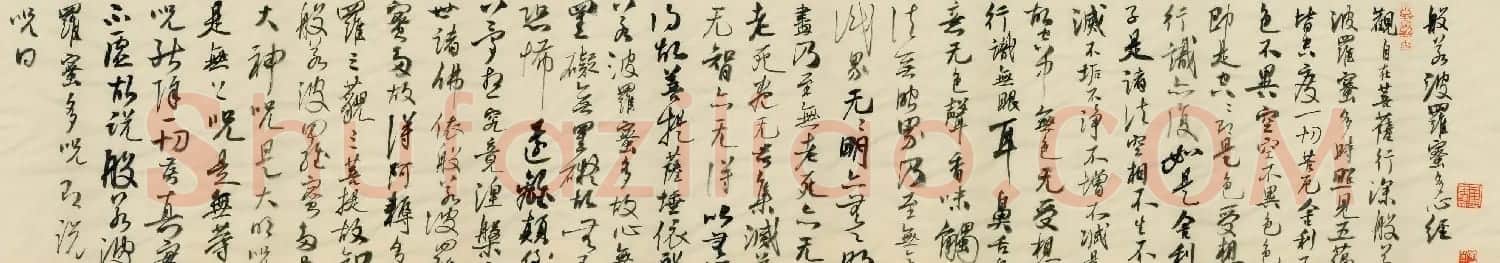 般若波羅蜜多心經
觀自在菩薩行深般若
波羅蜜多時照見五蘊
皆空度一切苦厄舍利子
色不異空空不異色色
即是空空即是色受想
行識亦復如是舍利
子是諸法空相不生不
滅不垢不淨不增不減是
故空中無色无受想
行識無眼耳鼻舌
意无色聲香味觸
法無眼界乃至無
識界无無明亦無無明
盡乃至無老死亦无
老死盡无苦集滅道
无智亦无得以無
得故菩提薩埵依般
若波羅蜜多故心無
罣礙無罣礙故無有
恐怖遠離顛倒
夢想究竟涅槃三
世諸佛依般若波羅
蜜多故得阿耨多
羅三藐三菩提故知
般若波羅蜜多是
大神呪是大明呪
是無上呪是無等
呪能除一切苦真實
不虛故說般若波
羅蜜多呪即說
呪曰
Shufaziliao.COM